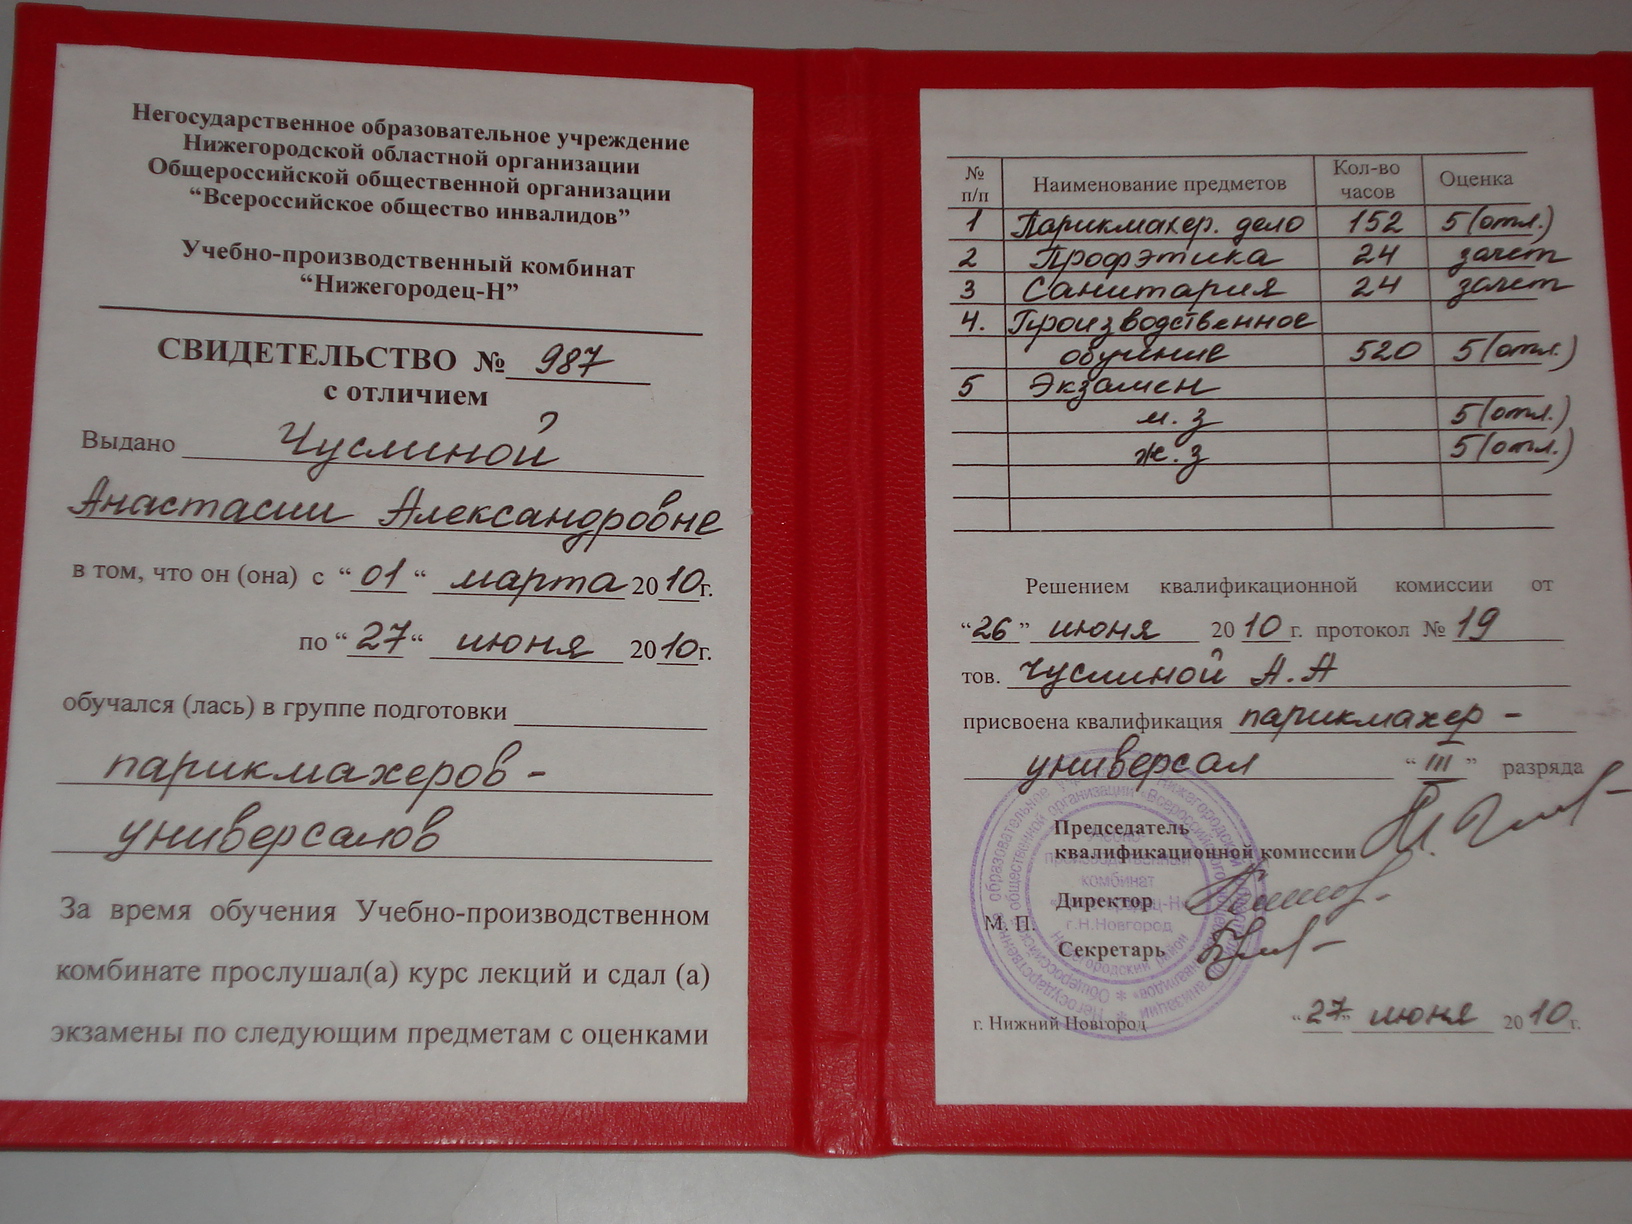 Негосударственное образовательное учреждение
Нижегородской областной организации
Общероссийской общественной организации
“Всероссийское общество инвалидов”
Учебно-производственный комбинат
“Нижегородец-Н”
СВИДЕТЕЛЬСТВО № 987
с отличием
Выдано Чуслиной
Анастасии Александровне
в том, что он (она) с “ 01 “ марта 2010г.
по “ 27 “ июня 2010г.
обучался (лась) в группе подготовки
парикмахеров -
универсалов
За время обучения Учебно-производственном
комбинате прослушал(а) курс лекций и сдал (а)
экзамены по следующим предметам с оценками
№ п/п Наименование предметов Кол-во часов Оценка
1 Парикмахер. дело 152 5 (отл.)
2 Профэтика 24 зачет
3 Санитария 24 зачет
4. Производственное
обучение 520 5 (отл.)
5 Экзамен
м. з 5 (отл.)
ж. з 5 (отл.)
Решением квалификационной комиссии от
“26” июня 2010 г. протокол № 19
тов. Чуслиной А. А
присвоена квалификация парикмахер -
универсал “ III ” разряда
Председатель
квалификационной комиссии
Директор
М. П.
Секретарь
г. Нижний Новгород “ 27 ” июня 2010 г.
производственный
комбинат
г.Н.Новгород